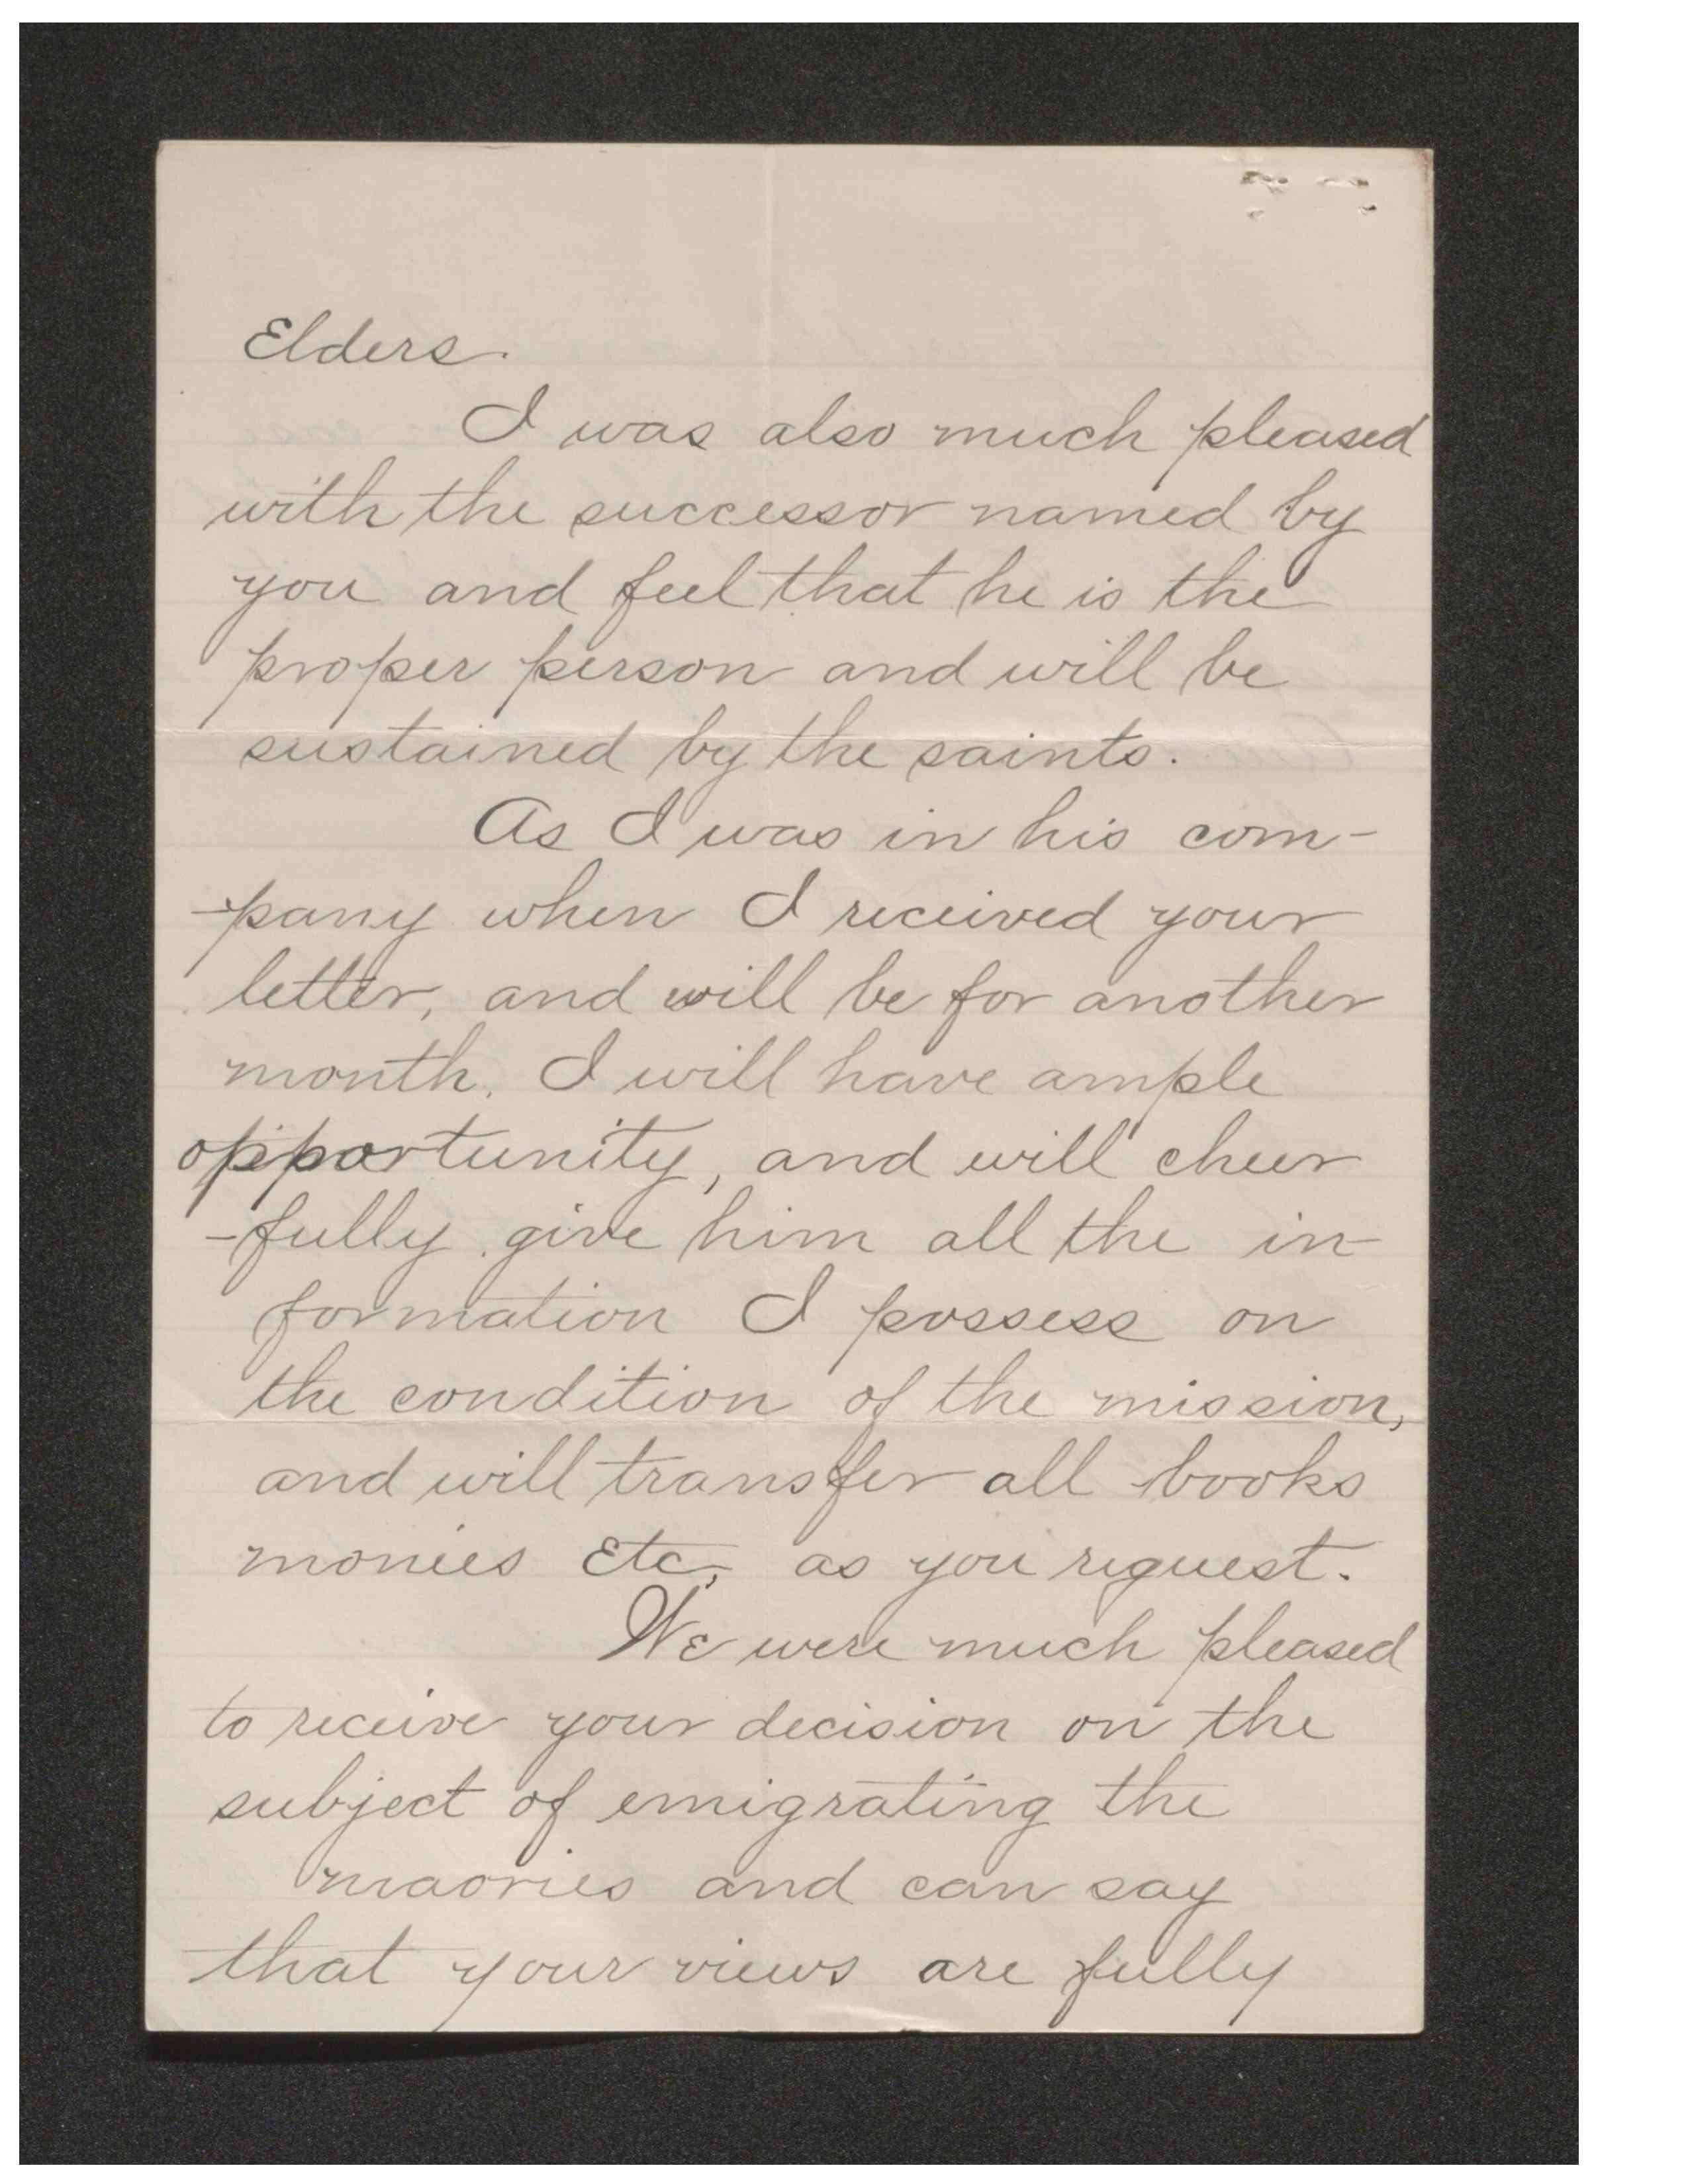 Elders.
I was also much pleased
with the successor named by
you and feel that he is the
proper person and will be
sustained by the saints.
As I was in his com-
-pany when I received your
letter, and will be for another
month. I will have ample
opportunity, and will cheer
-fully give him all the in-
formation I possess on
the condition of the mission,
and will transfer all books
monies Etc, as you request.
We were much pleased
to receive your decision on the
subject of emigrating the
maories and can say
that your views are fully